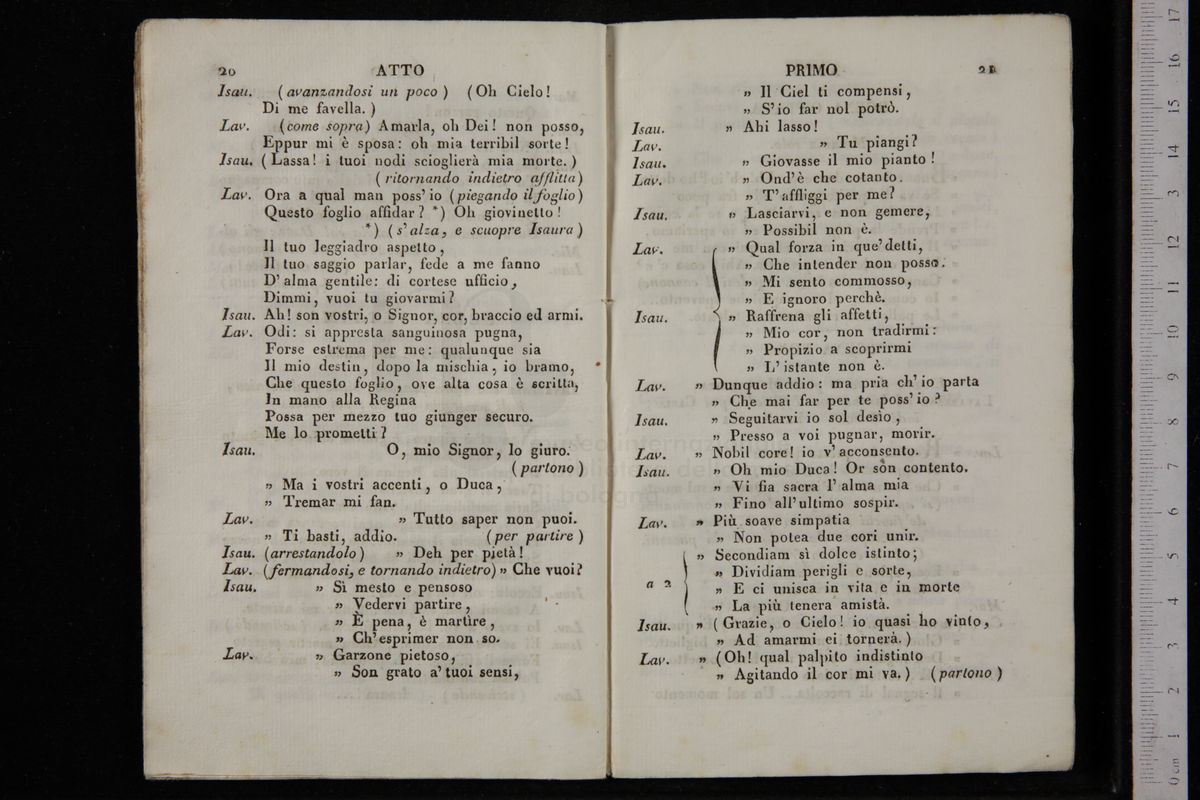 20 ATTO
Isau. (avanzandosi un poco) (Oh Cielo!
Di me favella.)
Lav. (come sopra) Amarla, oh Dei! non posso,
Eppur mi è sposa: oh mia terribil sorte!
Isau. (Lassa! i tuoi nodi scioglierà mia morte.)
(ritornando indietro afflitta)
Lav. Ora a qual man poss' io (piegando il foglio)
Questo foglio affidar? *) Oh giovinetto!
*) (s'alza, e scuopre Isaura)
Il tuo leggiadro aspetto,
Il tuo saggio parlar, fede a me fanno
D' alma gentile: di cortese ufficio,
Dimmi, vuoi tu giovarmi?
Isau. Ah! son vostri, o Signor, cor, braccio ed armi.
Lav. Odi: si appresta sanguinosa pugna,
Forse estrema per me: qualunque sia
Il mio destin, dopo la mischia, io bramo,
Che questo foglio, ove alta cosa è scritta,
In mano alla Regina
Possa per mezzo tuo giunger securo.
Me lo prometti?
Isau. O, mio Signor, lo giuro.
(partono)
» Ma i vostri accenti, o Duca,
» Tremar mi fan.
Lav. » Tutto saper non puoi.
» Ti basti, addio. (per partire)
Isau. (arrestandolo) » Deh per pietà!
Lav. (fermandosi, e tornando indietro) » Che vuoi?
Isau. » Sì mesto e pensoso
» Vedervi partire,
» È pena, è martire,
» Ch' esprimer non so.
Lav. » Garzone pietoso,
» Son grato a' tuoi sensi,
PRIMO 21
» Il Ciel ti compensi,
» S' io far nol potrò.
Isau. » Ahi lasso!
Lav. » Tu piangi?
Isau. » Giovasse il mio pianto!
Lav. » Ond' è che cotanto
» T' affliggi per me?
Isau. » Lasciarvi, e non gemere,
» Possibil non è.
Lav. » Qual forza in que' detti,
» Che intender non posso.
» Mi sento commosso,
» E ignoro perchè.
Isau. » Raffrena gli affetti,
» Mio cor, non tradirmi:
» Propizio a scoprirmi
» L' istante non è.
Lav. » Dunque addio: ma pria ch' io parta
» Che mai far per te poss' io?
Isau. » Seguitarvi io sol desìo,
» Presso a voi pugnar, morir.
Lav. » Nobil core! io v' acconsento.
Isau. » Oh mio Duca! Or son contento.
» Vi fia sacra l' alma mia
» Fino all' ultimo sospir.
Lav. » Più soave simpatia
» Non potea due cori unir.
» Secondiam sì dolce istinto;
» Dividiam perigli e sorte,
a 2 » E ci unisca in vita e in morte
» La più tenera amistà.
Isau. » (Grazie, o Cielo! io quasi ho vinto,
» Ad amarmi ei tornerà.)
Lav. » (Oh! qual palpito indistinto
» Agitando il cor mi va.) (partono)